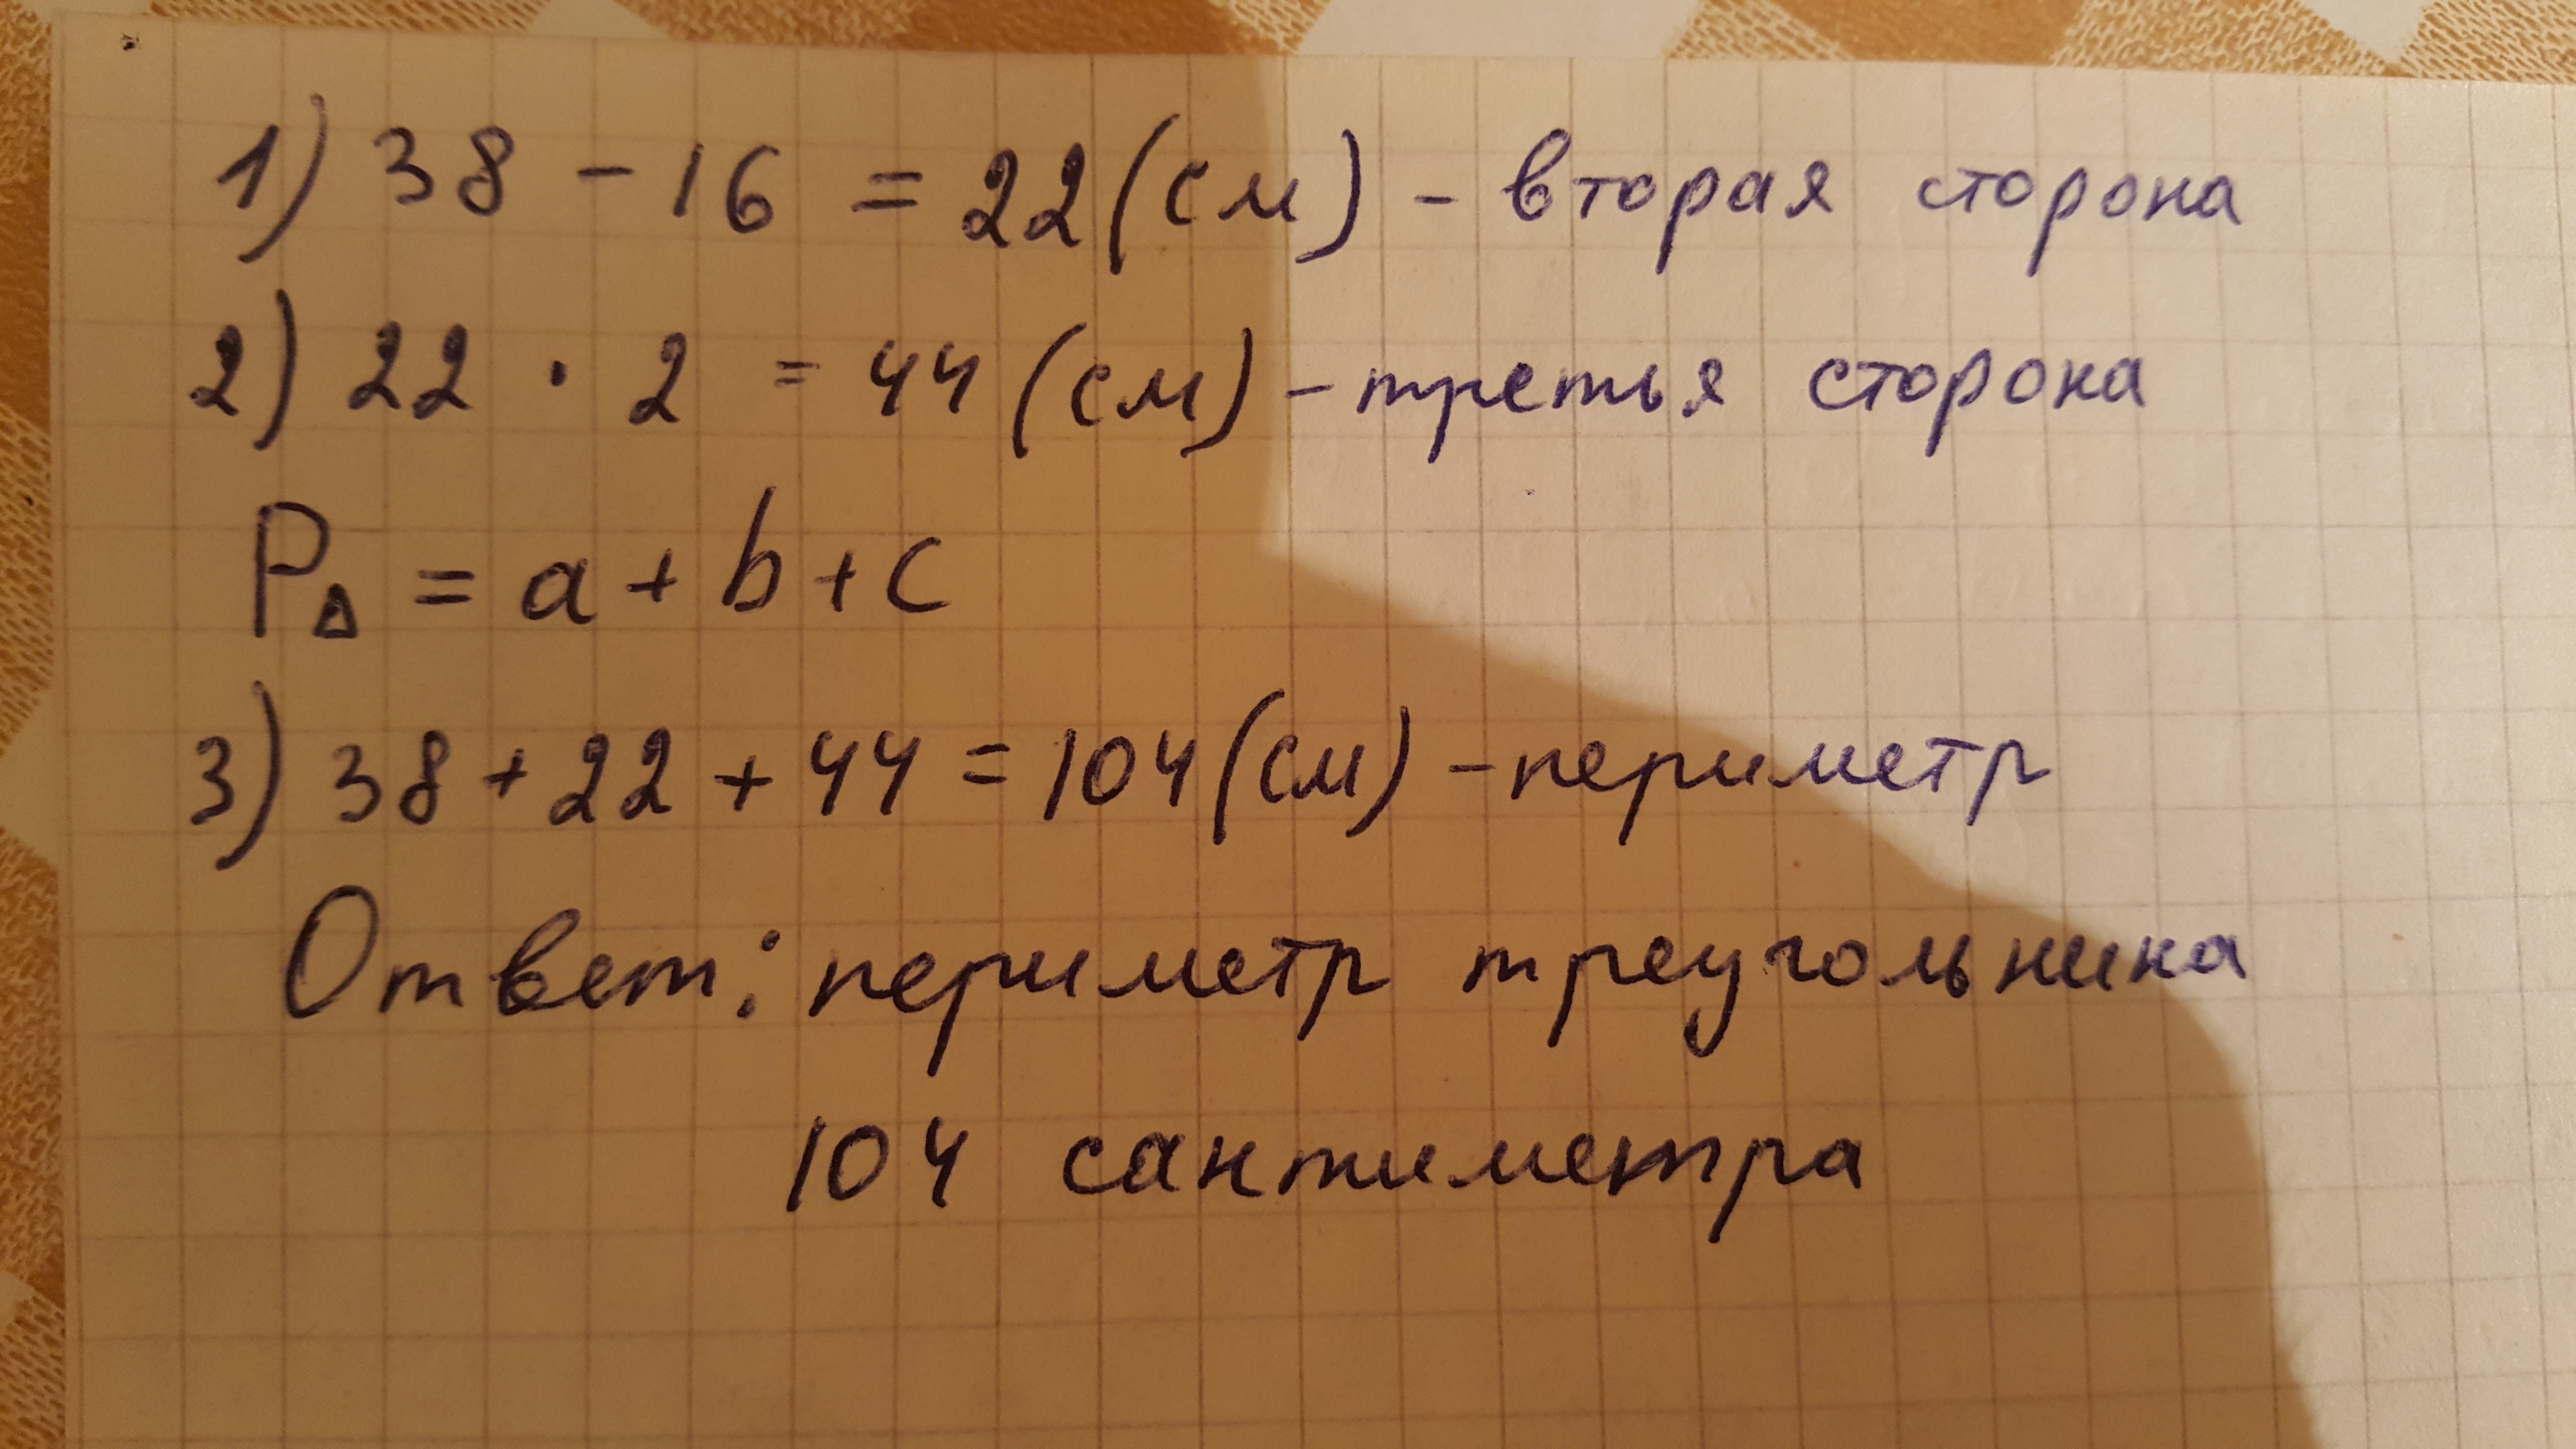 1) 38 - 16 = 22 (см) - вторая сторона
2) 22 · 2 = 44 (см) - третья сторона
P∆ = a + b + c
3) 38 + 22 + 44 = 104 (см) - периметр
Ответ: периметр треугольника
104 сантиметра